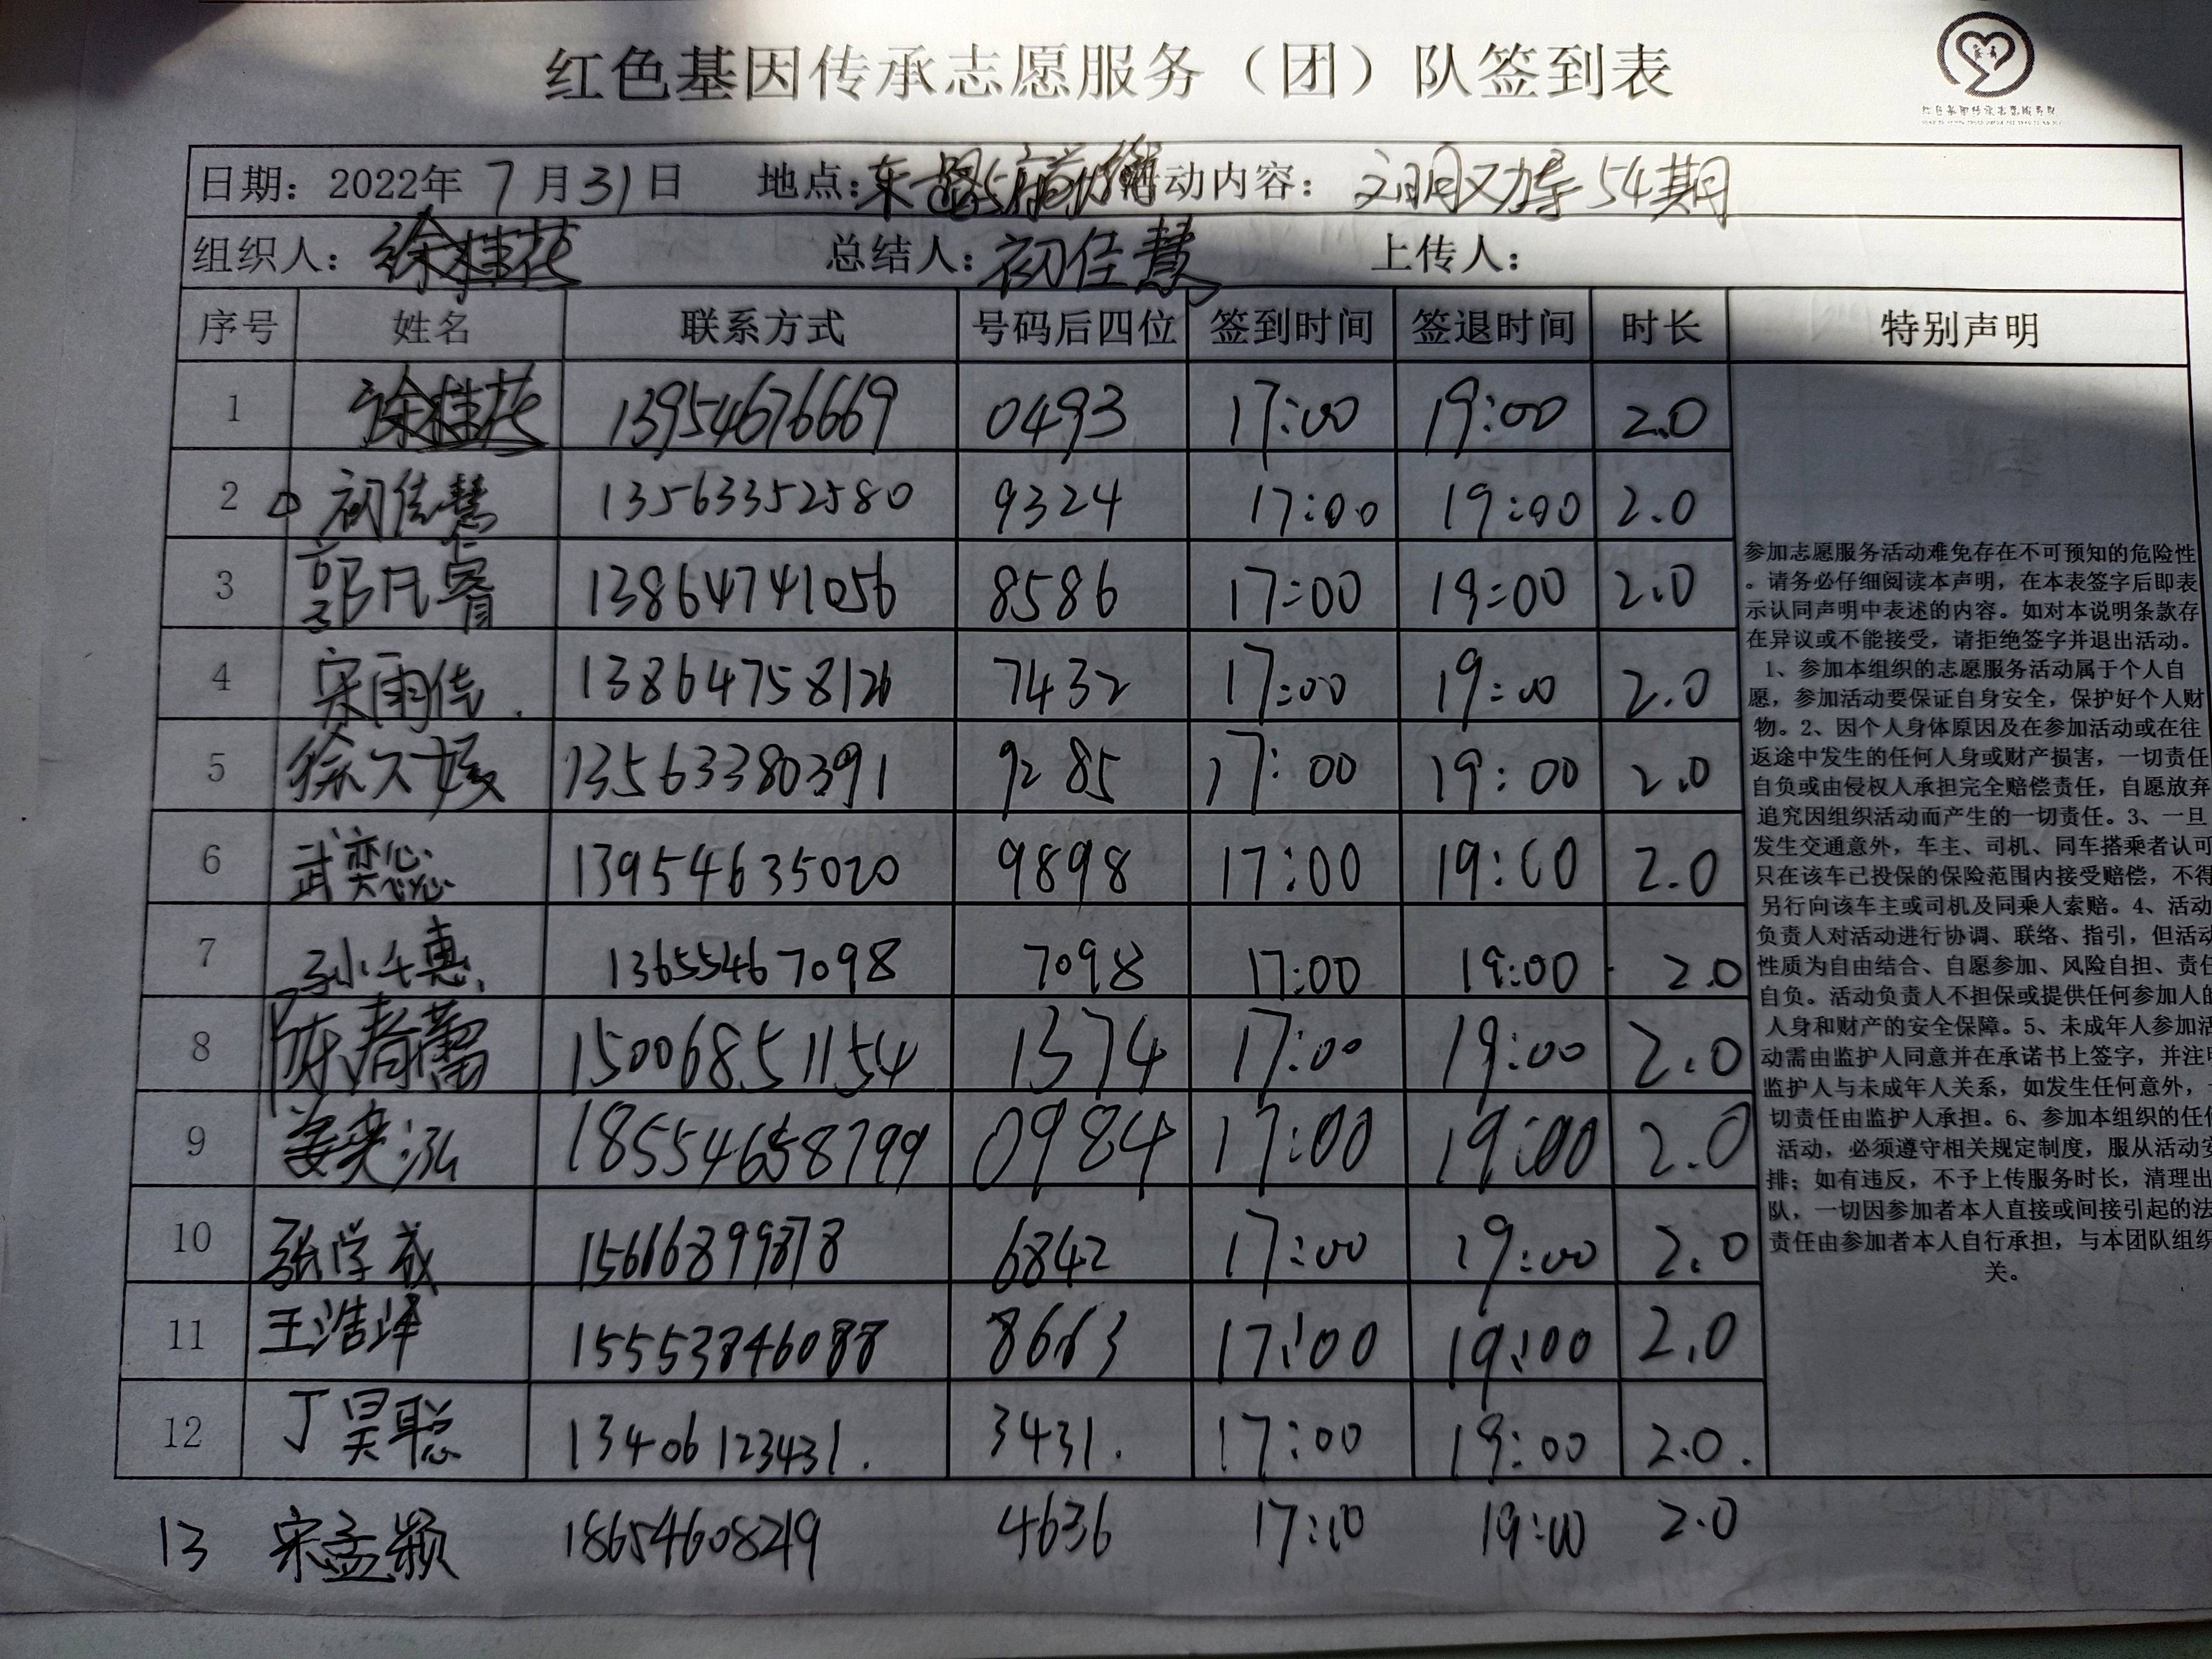 红色基因传承志愿服务（团）队签到表
红色基因传承志愿服务队
日期：2022年 7 月 31 日 地点： 活动内容： 文明又力导54期
组织人：徐桂花 总结人：初佳慧 上传人：
序号 姓名 联系方式 号码后四位 签到时间 签退时间 时长 特别声明
1 徐桂花 13954676669 0493 17:00 19:00 2.0
2 初佳慧 13563352580 9324 17:00 19:00 2.0
3 郭凡睿 13864741056 8586 17:00 19:00 2.0
4 宋雨佳 13864758126 7432 17:00 19:00 2.0
5 徐久媛 13563380391 9285 17:00 19:00 2.0
6 武 13954635020 9898 17:00 19:00 2.0
7 孙千惠 13655467098 7098 17:00 19:00 2.0
8 陈春蕾 15006851154 1374 17:00 19:00 2.0
9 姜奕泓 18554658799 0984 17:00 19:00 2.0
10 张学成 15666899878 6842 17:00 19:00 2.0
11 王浩泽 15553846088 8663 17:00 19:00 2.0
12 丁昊聪 13406123431. 3431. 17:00 19:00 2.0.
13 宋孟颖 18654608249 4636 17:00 19:00 2.0
参加志愿服务活动难免存在不可预知的危险性
。请务必仔细阅读本声明，在本表签字后即表
示认同声明中表述的内容。如对本说明条款存
在异议或不能接受，请拒绝签字并退出活动。
1、参加本组织的志愿服务活动属于个人自
愿，参加活动要保证自身安全，保护好个人财
物。2、因个人身体原因及在参加活动或在往
返途中发生的任何人身或财产损害，一切责任
自负或由侵权人承担完全赔偿责任，自愿放弃
追究因组织活动而产生的一切责任。3、一旦
发生交通意外，车主、司机、同车搭乘者认可
只在该车已投保的保险范围内接受赔偿，不得
另行向该车主或司机及同乘人索赔。4、活动
负责人对活动进行协调、联络、指引，但活动
性质为自由结合、自愿参加、风险自担、责任
自负。活动负责人不担保或提供任何参加人的
人身和财产的安全保障。5、未成年人参加活
动需由监护人同意并在承诺书上签字，并注明
监护人与未成年人关系，如发生任何意外，
切责任由监护人承担。6、参加本组织的任何
活动，必须遵守相关规定制度，服从活动安
排；如有违反，不予上传服务时长，清理出
队，一切因参加者本人直接或间接引起的法
责任由参加者本人自行承担，与本团队组织
关。